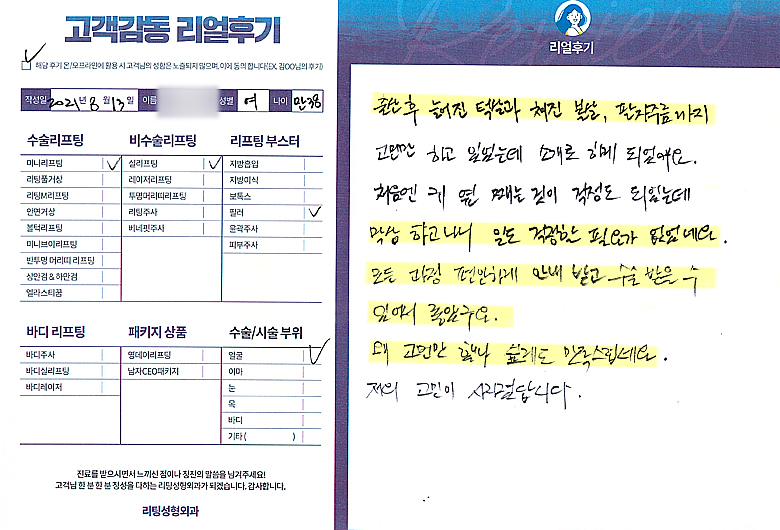 고객감동 리얼후기
해당 후기 온/오프라인에 활용 시 고객님의 성함은 노출되지 않으며, 이에 동의 합니다(EX. 김OO님의 후기)
작성일 2021년 8월 13일 이름 성별 여 나이 만38
수술리프팅
미니리프팅
리팅풀거상
리팅M리프팅
안면거상
볼턱리프팅
미니브이리프팅
반투명 머리띠 리프팅
상안검 & 하안검
엘라스티꿈
비수술리프팅
실리프팅
레이저리프팅
투명머리띠리프팅
리팅주사
베네핏주사
리프팅 부스터
지방흡입
지방이식
보톡스
필러
윤곽주사
피부주사
바디 리프팅
바디주사
바디실리프팅
바디레이저
패키지 상품
영데이리프팅
남자CEO패키지
수술/시술 부위
얼굴
이마
눈
목
바디
기타 ( )
진료를 받으시면서 느끼신 점이나 칭찬의 말씀을 남겨주세요!
고객님 한 분 한 분 정성을 다하는 리팅성형외과가 되겠습니다. 감사합니다.
리팅성형외과
Review
리얼후기
출산 후 늘어진 턱살과 처진 볼살, 팔자주름까지
고민만 하고 있었는데 소개로 하게 되었어요.
처음엔 귀 옆 째는 것이 걱정도 되었는데
막상 하고나니 일도 걱정할 필요가 없었네요.
모든 과정 편안하게 안내 받고 수술 받을 수
있어서 좋았구요.
왜 고민만 했나 싶게도 만족스럽네요.
저의 고민이 사라졌답니다.